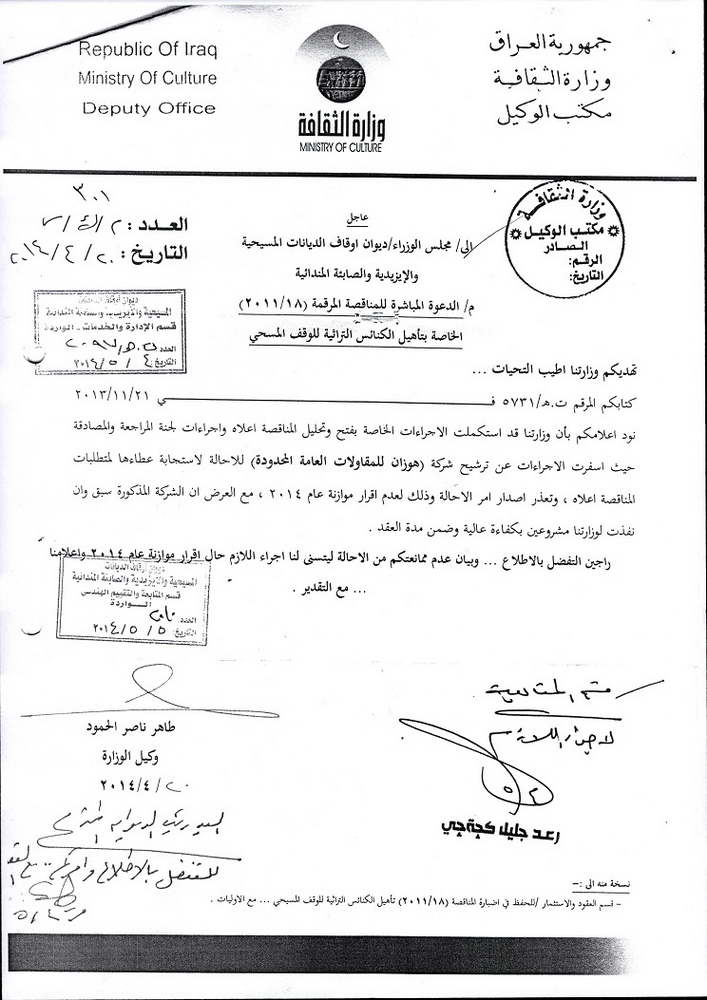 Republic Of Iraq
Ministry Of Culture
Deputy Office
وزارة الثقافة
MINISTRY OF CULTURE
جمهورية العراق
وزارة الثقافة
مكتب الوكيل
٣٠١
العدد :
التاريخ : ٢٠ / ٤ / ٢٠١٤
وزارة الثقافة
مكتب الوكيل
الصادر
الرقم:
التاريخ:
عاجل
الى/ مجلس الوزراء/ديوان اوقاف الديانات المسيحية
والإيزيدية والصابئة المندائية
م/ الدعوة المباشرة للمناقصة المرقمة (٢٠١١/١٨)
الخاصة بتأهيل الكنائس التراثية للوقف المسحي
ديوان اوقاف الديانات
المسيحية والايزيدية والصابئة المندائية
قسم الإدارة والخدمات - الواردة
العدد
التاريخ: ٤ / ٥ / ٢٠١٤
تهديكم وزارتنا اطيب التحيات ...
كتابكم المرقم ت.هـ/٥٧٣١ فـــي ٢٠١٣/١١/٢١
نود اعلامكم بأن وزارتنا قد استكملت الاجراءات الخاصة بفتح وتحليل المناقصة اعلاه واجراءات لجنة المراجعة والمصادقة
حيث اسفرت الاجراءات عن ترشيح شركة (هوزان للمقاولات العامة المحدودة) للاحالة لاستجابة عطاءها لمتطلبات
المناقصة اعلاه ، وتعذر اصدار امر الاحالة وذلك لعدم اقرار موازنة عام ٢٠١٤ ، مع العرض ان الشركة المذكورة سبق وان
نفذت لوزارتنا مشروعين بكفاءة عالية وضمن مدة العقد .
راجين التفضل بالاطلاع ... وبيان عدم ممانعتكم من الاحالة ليتسنى لنا اجراء اللازم حال اقرار موازنة عام ٢٠١٤ واعلامنا
... مع التقدير .
ديوان اوقاف الديانات
المسيحية والايزيدية والصابئة المندائية
قسم المتابعة والتقييم الهندسي
الـــواردة
العدد:
التاريخ: ٥ / ٥ / ٢٠١٤
طاهر ناصر الحمود
وكيل الوزارة
٢٠ / ٤ / ٢٠١٤
السيد رئيس الديوان المحترم
للتفضل بالاطلاع وامركم
قسم المتابعة
لاجراء اللازم
رعد جليل كجةجي
نسخة منه الى :-
- قسم العقود والاستثمار /للحفظ في اضبارة المناقصة (٢٠١١/١٨) تأهيل الكنائس التراثية للوقف المسيحي ... مع الاوليات .